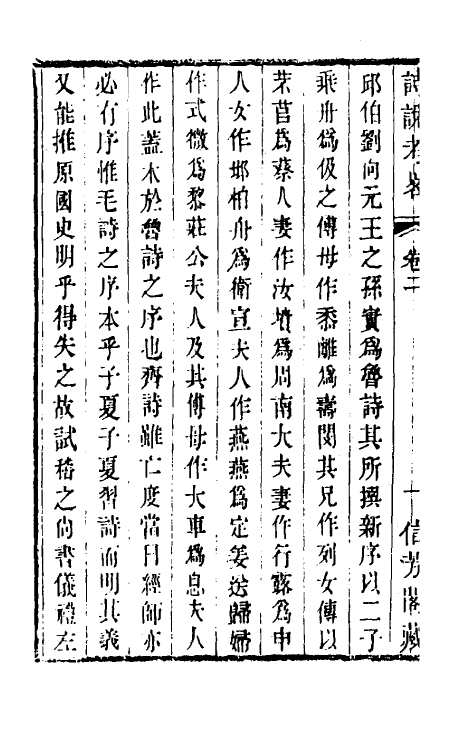 詩說考畧 卷二 十 信芳閣藏
邱伯劉向元王之孫實爲魯詩其所撰新序以二子
乘舟爲伋之傅母作黍離爲壽閔其兄作列女傳以
芣苢爲蔡人妻作汝墳爲周南大夫妻作行露爲申
人女作邶柏舟爲衛宣夫人作燕燕爲定姜送歸婦
作式微爲黎莊公夫人及其傅母作大車爲息夫人
作此蓋本於魯詩之序也齊詩雖亡度當日經師亦
必有序惟毛詩之序本乎子夏子夏習詩而明其義
又能推原國史明乎得失之故試稽之尙書儀禮左